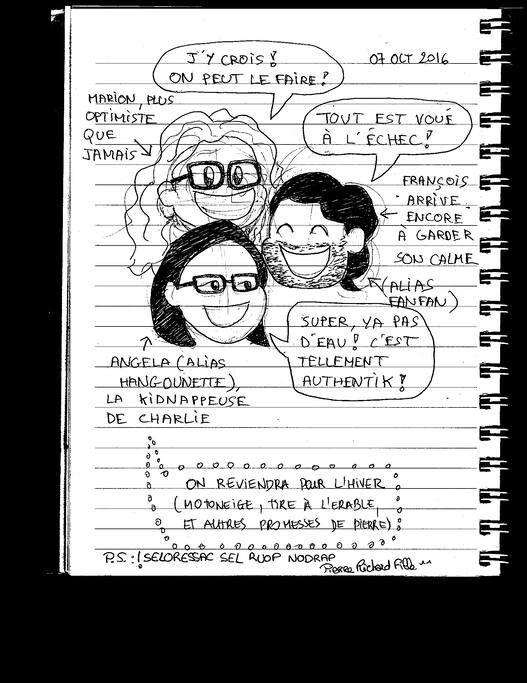 J'Y CROIS !
ON PEUT LE FAIRE !
07 OCT 2016
MARION, PLUS
OPTIMISTE
QUE
JAMAIS
TOUT EST VOUÉ
À L'ÉCHEC !
FRANÇOIS
ARRIVE
ENCORE
À GARDER
SON CALME
(ALIAS
FANFAN)
SUPER, YA PAS
D'EAU ! C'EST
TELLEMENT
AUTHENTIK !
ANGELA (ALIAS
HANGOUNETTE),
LA KIDNAPPEUSE
DE CHARLIE
ON REVIENDRA POUR L'HIVER
(MOTONEIGE, TIRE À L'ERABLE,
ET AUTRES PROMESSES DE PIERRE)
P.S. : ! SELORESSAC SEL RUOP NODRAP
Pierre Richard